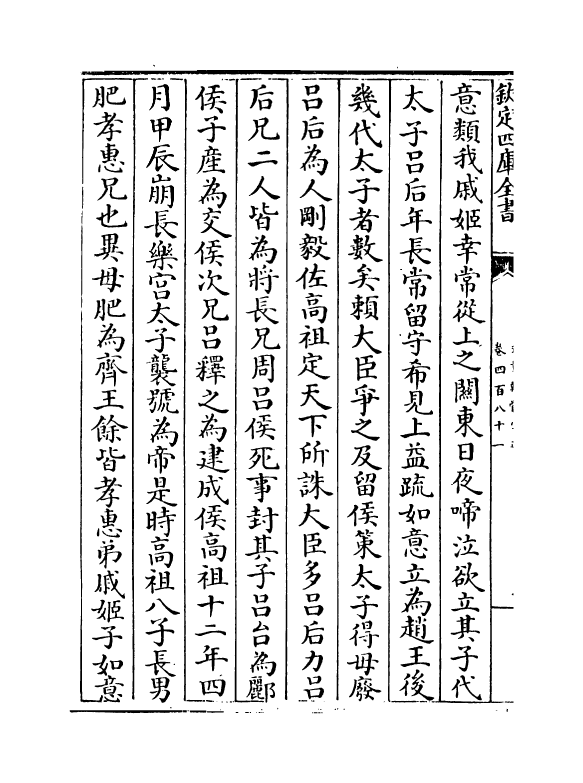 欽定四庫全書
卷四百八十一
意類我戚姬幸常從上之關東日夜啼泣欲立其子代
太子呂后年長常留守希見上益疏如意立為趙王後
幾代太子者數矣賴大臣爭之及留侯策太子得毋廢
呂后為人剛毅佐高祖定天下所誅大臣多呂后力呂
后兄二人皆為將長兄周呂侯死事封其子呂台為酈
侯子產為交侯次兄呂釋之為建成侯高祖十二年四
月甲辰崩長樂宮太子襲號為帝是時高祖八子長男
肥孝惠兄也異母肥為齊王餘皆孝惠弟戚姬子如意